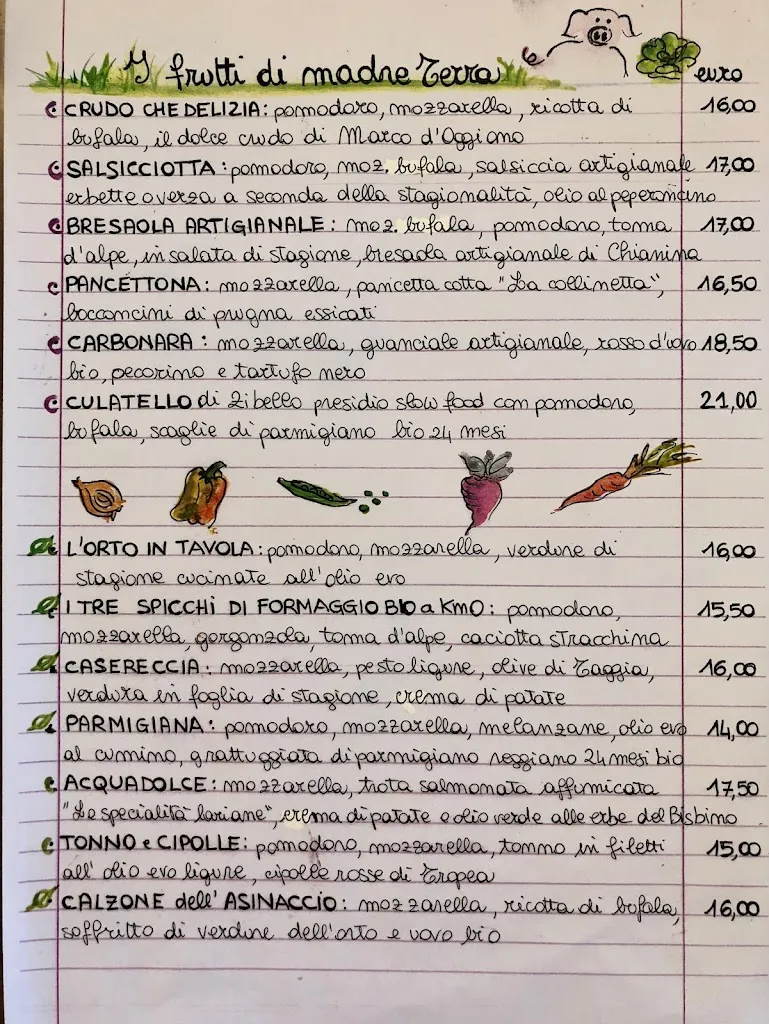 I frutti di madre Terra
euro
CRUDO CHE DELIZIA: pomodoro, mozzarella, ricotta di 16,00
bufala, il dolce crudo di Marco d'Oggiono
SALSICCIOTTA: pomodoro, moz. bufala, salsiccia artigianale 17,00
erbette o verza a seconda della stagionalità, olio al peperoncino
BRESAOLA ARTIGIANALE: moz. bufala, pomodoro, toma 17,00
d'alpe, insalata di stagione, bresaola artigianale di Chianina
PANCETTONA: mozzarella, pancetta cotta "La collinetta", 16,50
bocconcini di prugna essicati
CARBONARA: mozzarella, guanciale artigianale, rosso d'uovo 18,50
bio, pecorino e tartufo nero
CULATELLO di Zibello presidio slow food con pomodoro, 21,00
bufala, scaglie di parmigiano bio 24 mesi
L'ORTO IN TAVOLA: pomodoro, mozzarella, verdure di 16,00
stagione cucinate all'olio evo
I TRE SPICCHI DI FORMAGGIO BIO a KM0: pomodoro, 15,50
mozzarella, gorgonzola, toma d'alpe, caciotta stracchina
CASERECCIA: mozzarella, pesto ligure, olive di Taggia, 16,00
verdura in foglia di stagione, crema di patate
PARMIGIANA: pomodoro, mozzarella, melanzane, olio evo 14,00
al cumino, grattuggiata di parmigiano reggiano 24 mesi bio
ACQUADOLCE: mozzarella, trota salmonata affumicata 17,50
"Le specialità lariane", crema di patate e olio verde alle erbe del Bisbino
TONNO e CIPOLLE: pomodoro, mozzarella, tonno in filetti 15,00
all' olio evo ligure, cipolle rosse di Tropea
CALZONE dell'ASINACCIO: mozzarella, ricotta di bufala, 16,00
soffritto di verdure dell'orto e uovo bio